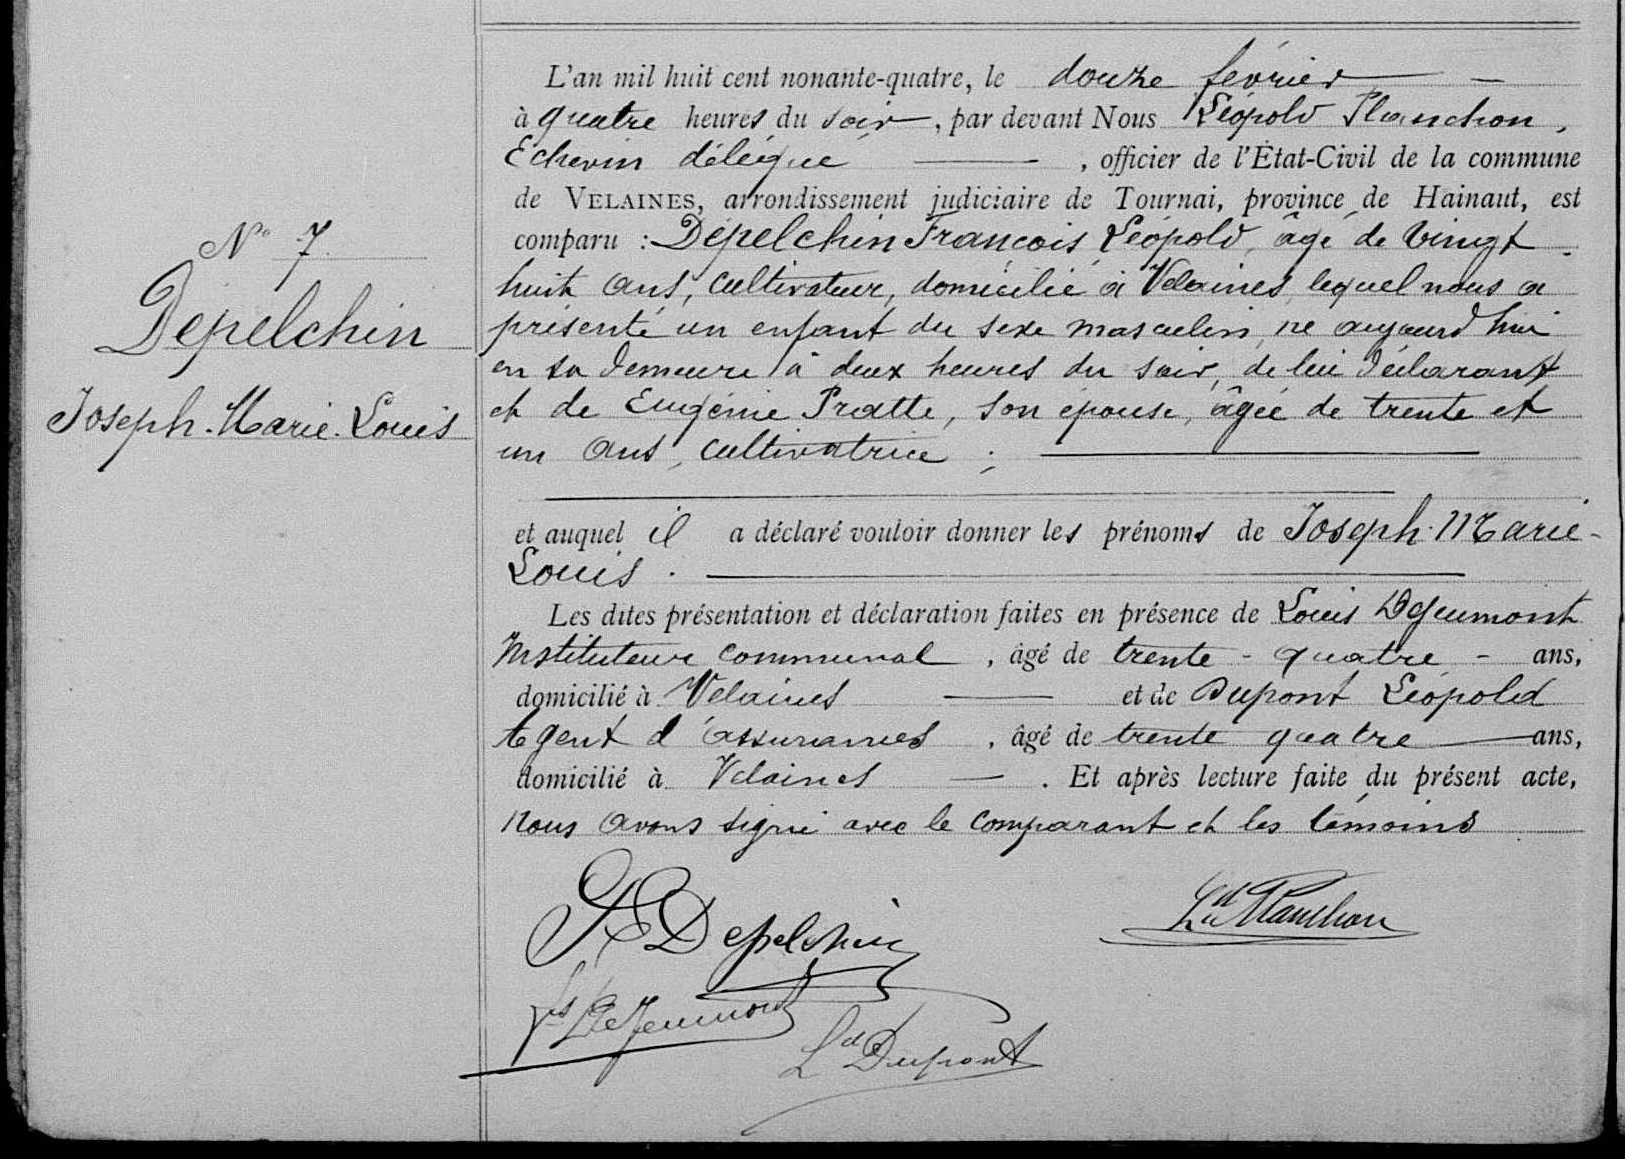 N° 7.
Depelchin
Joseph-Marie-Louis
L'an mil huit cent nonante-quatre, le douze février
à quatre heures du soir, par devant Nous Léopold Planchon,
Echevin délégué, officier de l'État-Civil de la commune
de VELAINES, arrondissement judiciaire de Tournai, province de Hainaut, est
comparu : Depelchin François Léopold, âgé de vingt
huit ans, cultivateur, domicilié à Velaines, lequel nous a
présenté un enfant du sexe masculin, né aujourd'hui
en sa demeure à deux heures du soir, de lui déclarant
et de Eugénie Pratte, son épouse, âgée de trente et
un ans, cultivatrice ;
et auquel il a déclaré vouloir donner les prénoms de Joseph-Marie-
Louis.
Les dites présentation et déclaration faites en présence de Louis Dejeumont
Instituteur communal, âgé de trente-quatre ans,
domicilié à Velaines et de Dupont Léopold
Agent d'assurances, âgé de trente quatre ans,
domicilié à Velaines. Et après lecture faite du présent acte,
nous avons signé avec le comparant et les témoins
Depelchin
Ld Planchon
DeJeumont
Ld Dupont